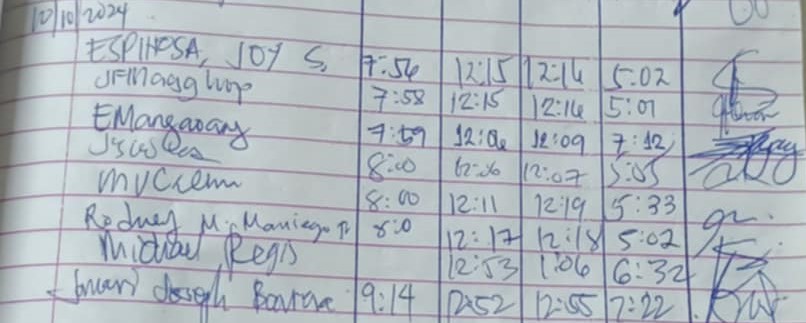 10/10/2024
ESPINOSA, JOY S. 7:56 12:15 12:16 5:02
7:58 12:15 12:16 5:01
EMangaoang 7:59 12:06 12:09 7:12
8:00 12:06 12:07 5:05
8:00 12:11 12:19 5:33
Rodney M. Maniego Jr 8:0 12:17 12:18 5:02
Michael Regis 12:53 1:06 6:32
Joseph 9:14 12:52 12:55 7:22